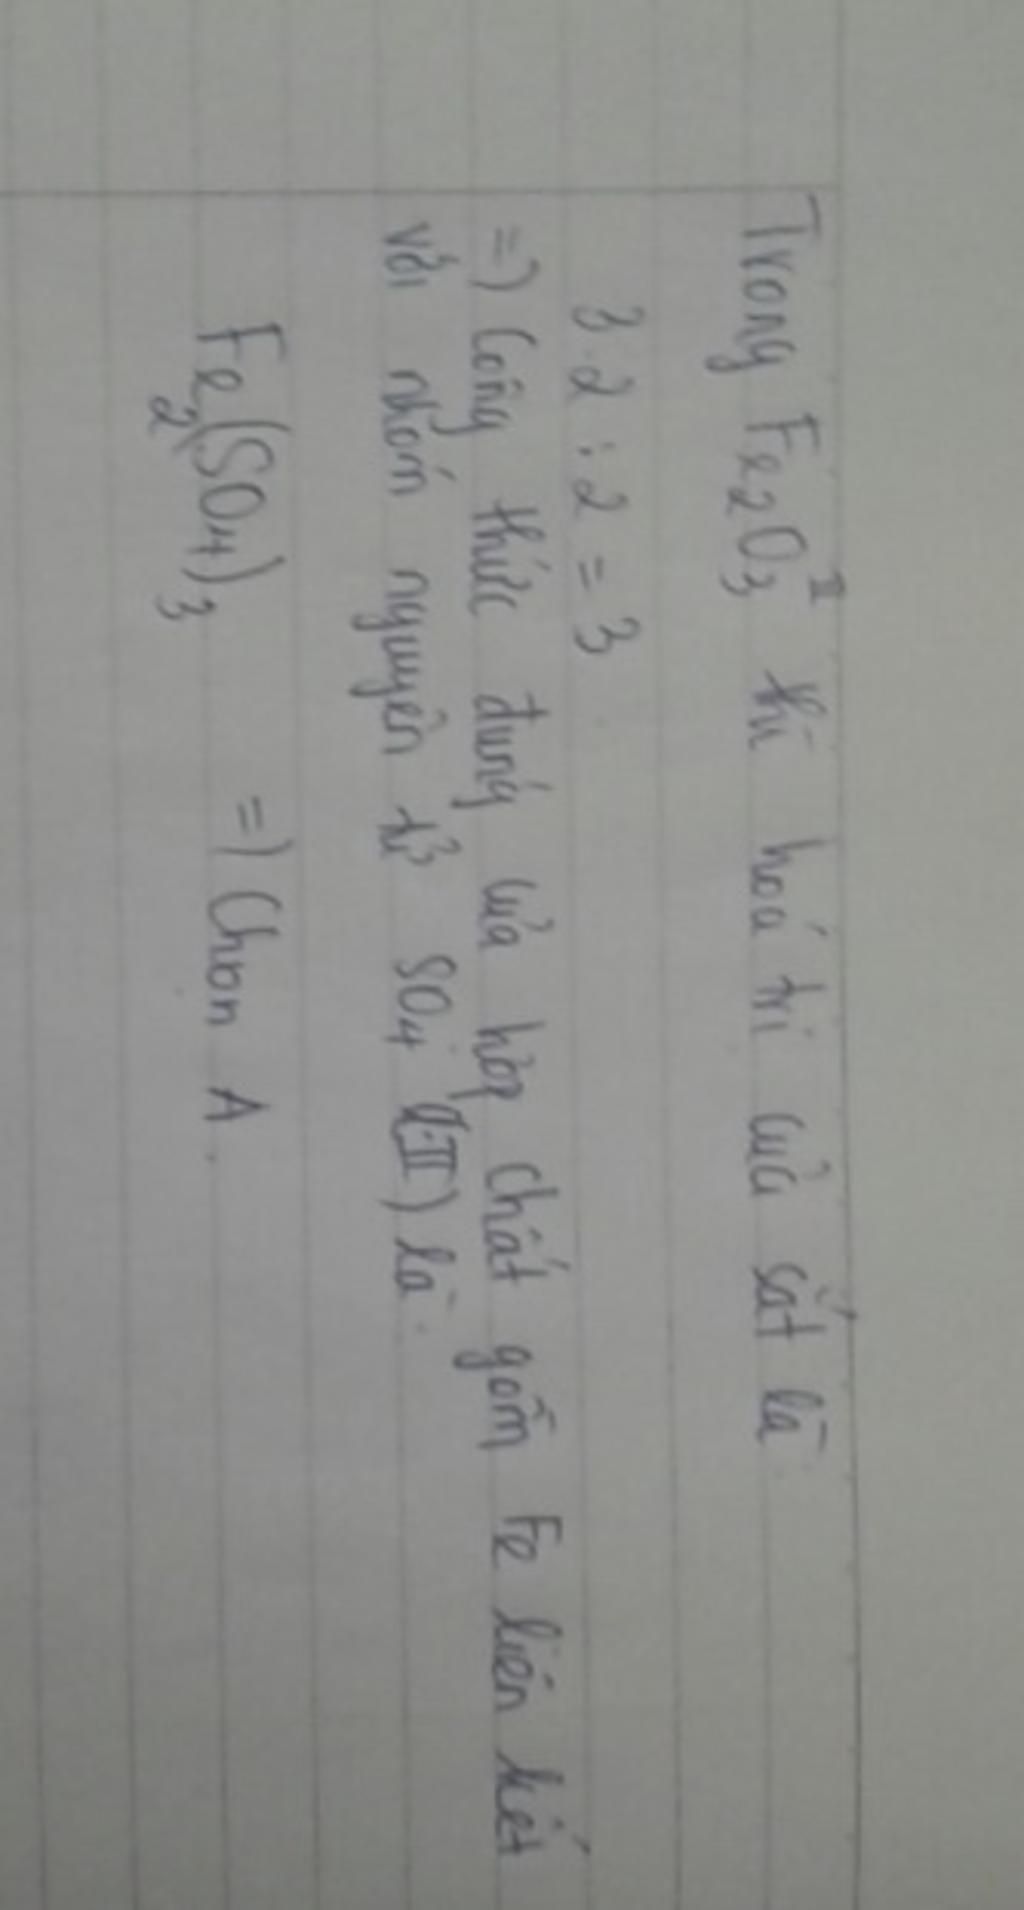 Trong Fe₂O₃ᴵᴵ thì hoá trị của sắt là
3.2 : 2 = 3
=) Công thức đúng của hợp chất gồm Fe liên kết
với nhóm nguyên tử SO₄ (II) là:
Fe₂(SO₄)₃ =) Chọn A.